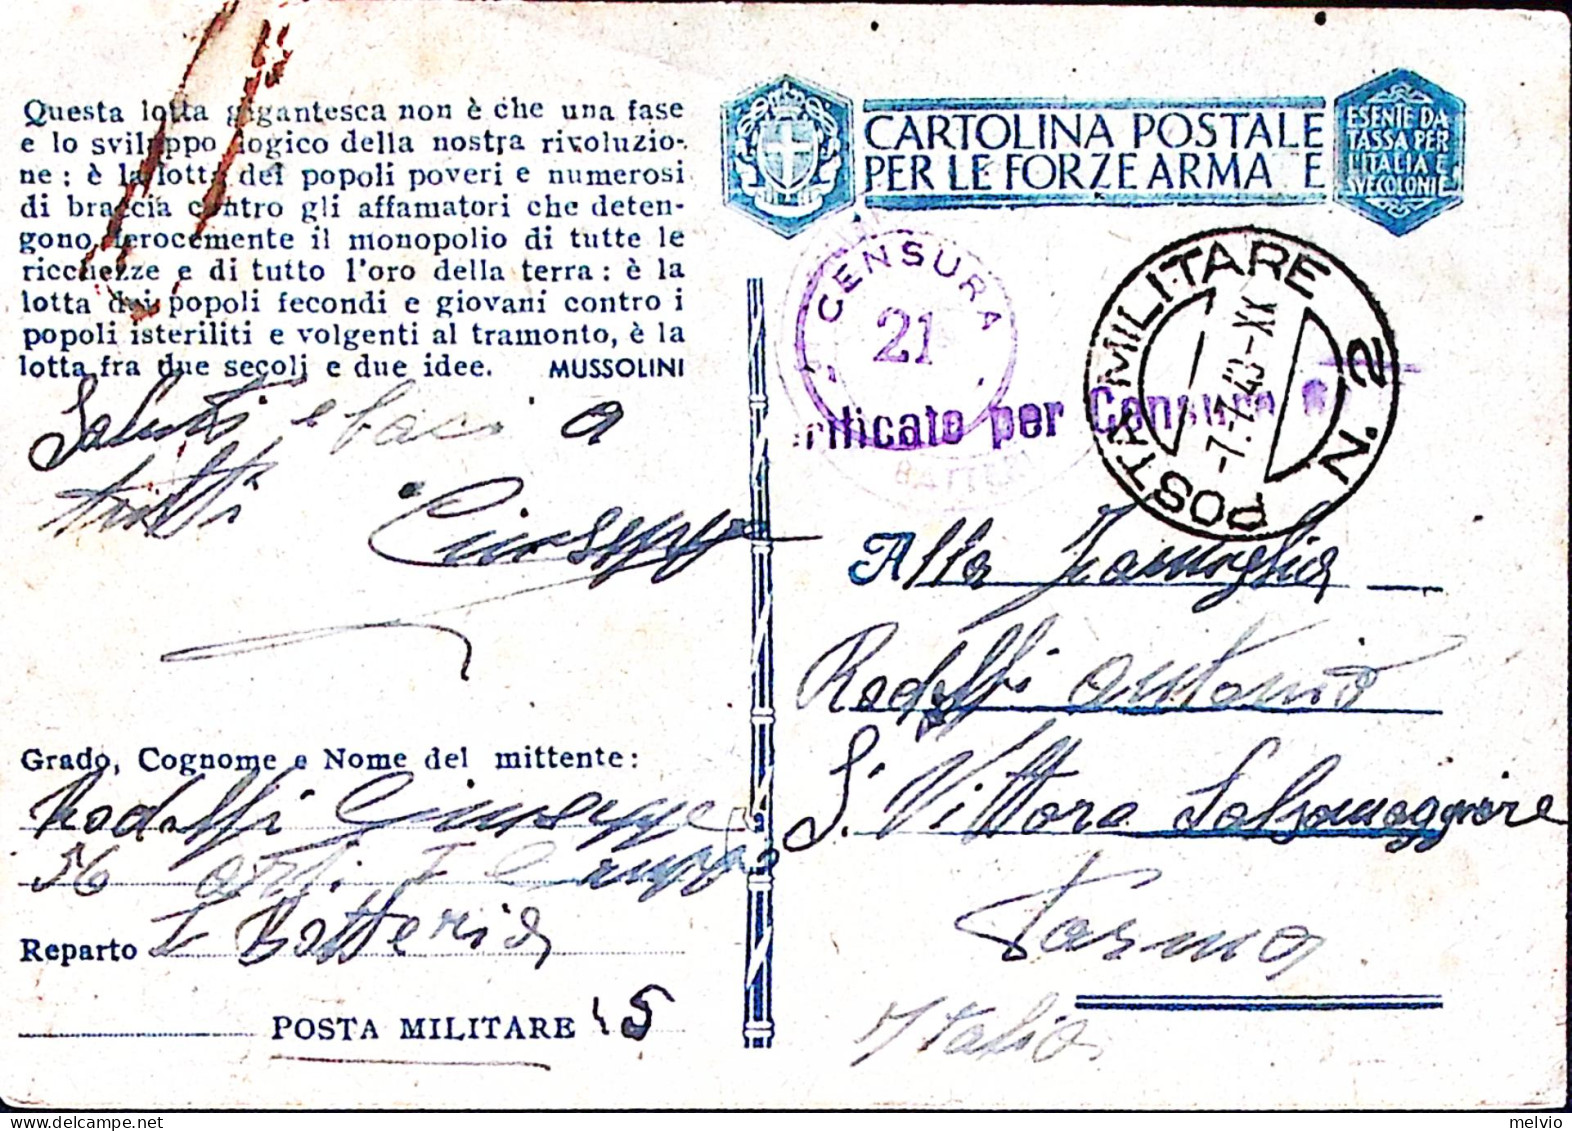 Questa lotta gigantesca non è che una fase
e lo sviluppo logico della nostra rivoluzio-
ne : è la lotta dei popoli poveri e numerosi
di braccia contro gli affamatori che deten-
gono ferocemente il monopolio di tutte le
ricchezze e di tutto l'oro della terra : è la
lotta dei popoli fecondi e giovani contro i
popoli isteriliti e volgenti al tramonto, è la
lotta fra due secoli e due idee. MUSSOLINI
Saluti e baci a
tutti
Giuseppe
Grado, Cognome e Nome del mittente:
Rodolfi Giuseppe
56 art. I Gruppo
Reparto I Batteria
POSTA MILITARE 45
CARTOLINA POSTALE
PER LE FORZE ARMATE
ESENTE DA
TASSA PER
L'ITALIA E
SUE COLONIE
CENSURA
21
Verificato per Censura
POSTA MILITARE N. 2
-7.7.40-XX
Alla Famiglia
Rodolfi Antonio
S. Vittore Salsomaggiore
Parma
Italia
melvio